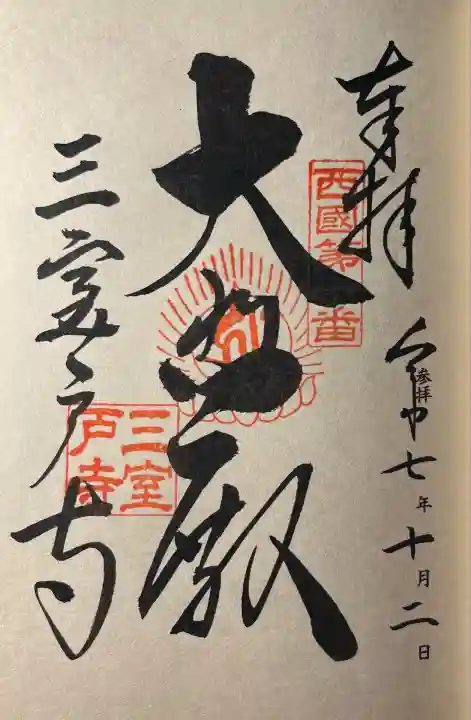 奉拝
西國第十番
令和七年十月二日
参拝
大悲殿
三室戸寺
三室
戸寺